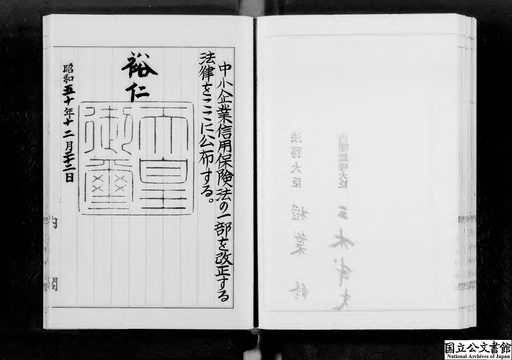 中小企業信用保険法の一部を改正する
法律をここに公布する。
裕仁
天皇
御璽
昭和五十年十二月二十二日
内閣
内閣総理大臣
三木武夫
法務大臣
稻葉修
国立公文書館
National Archives of Japan